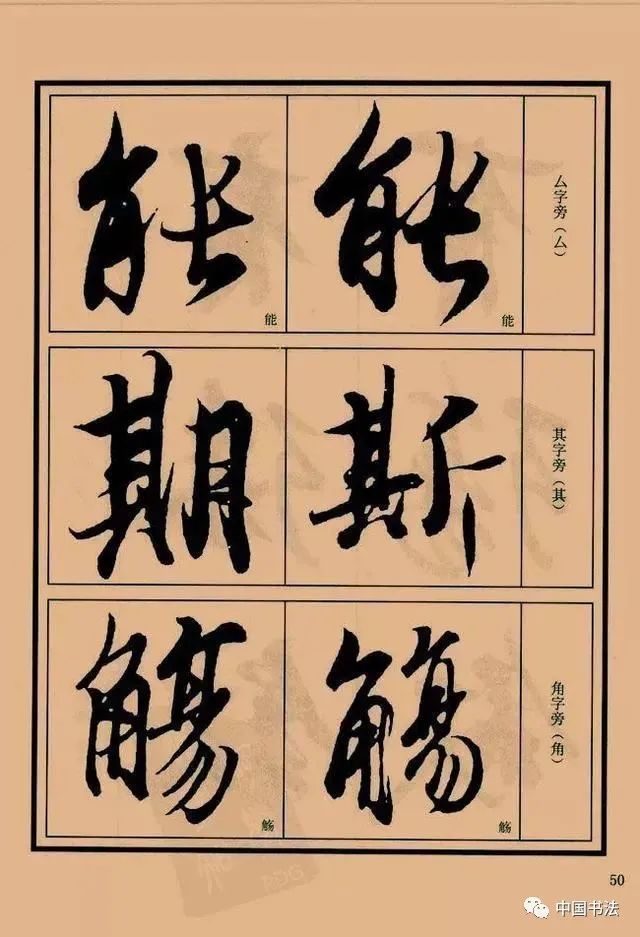 厶字旁（厶）
能
能
能
能
其字旁（其）
斯
期
角字旁（角）
觞
觞
觞
觞
50
中国书法